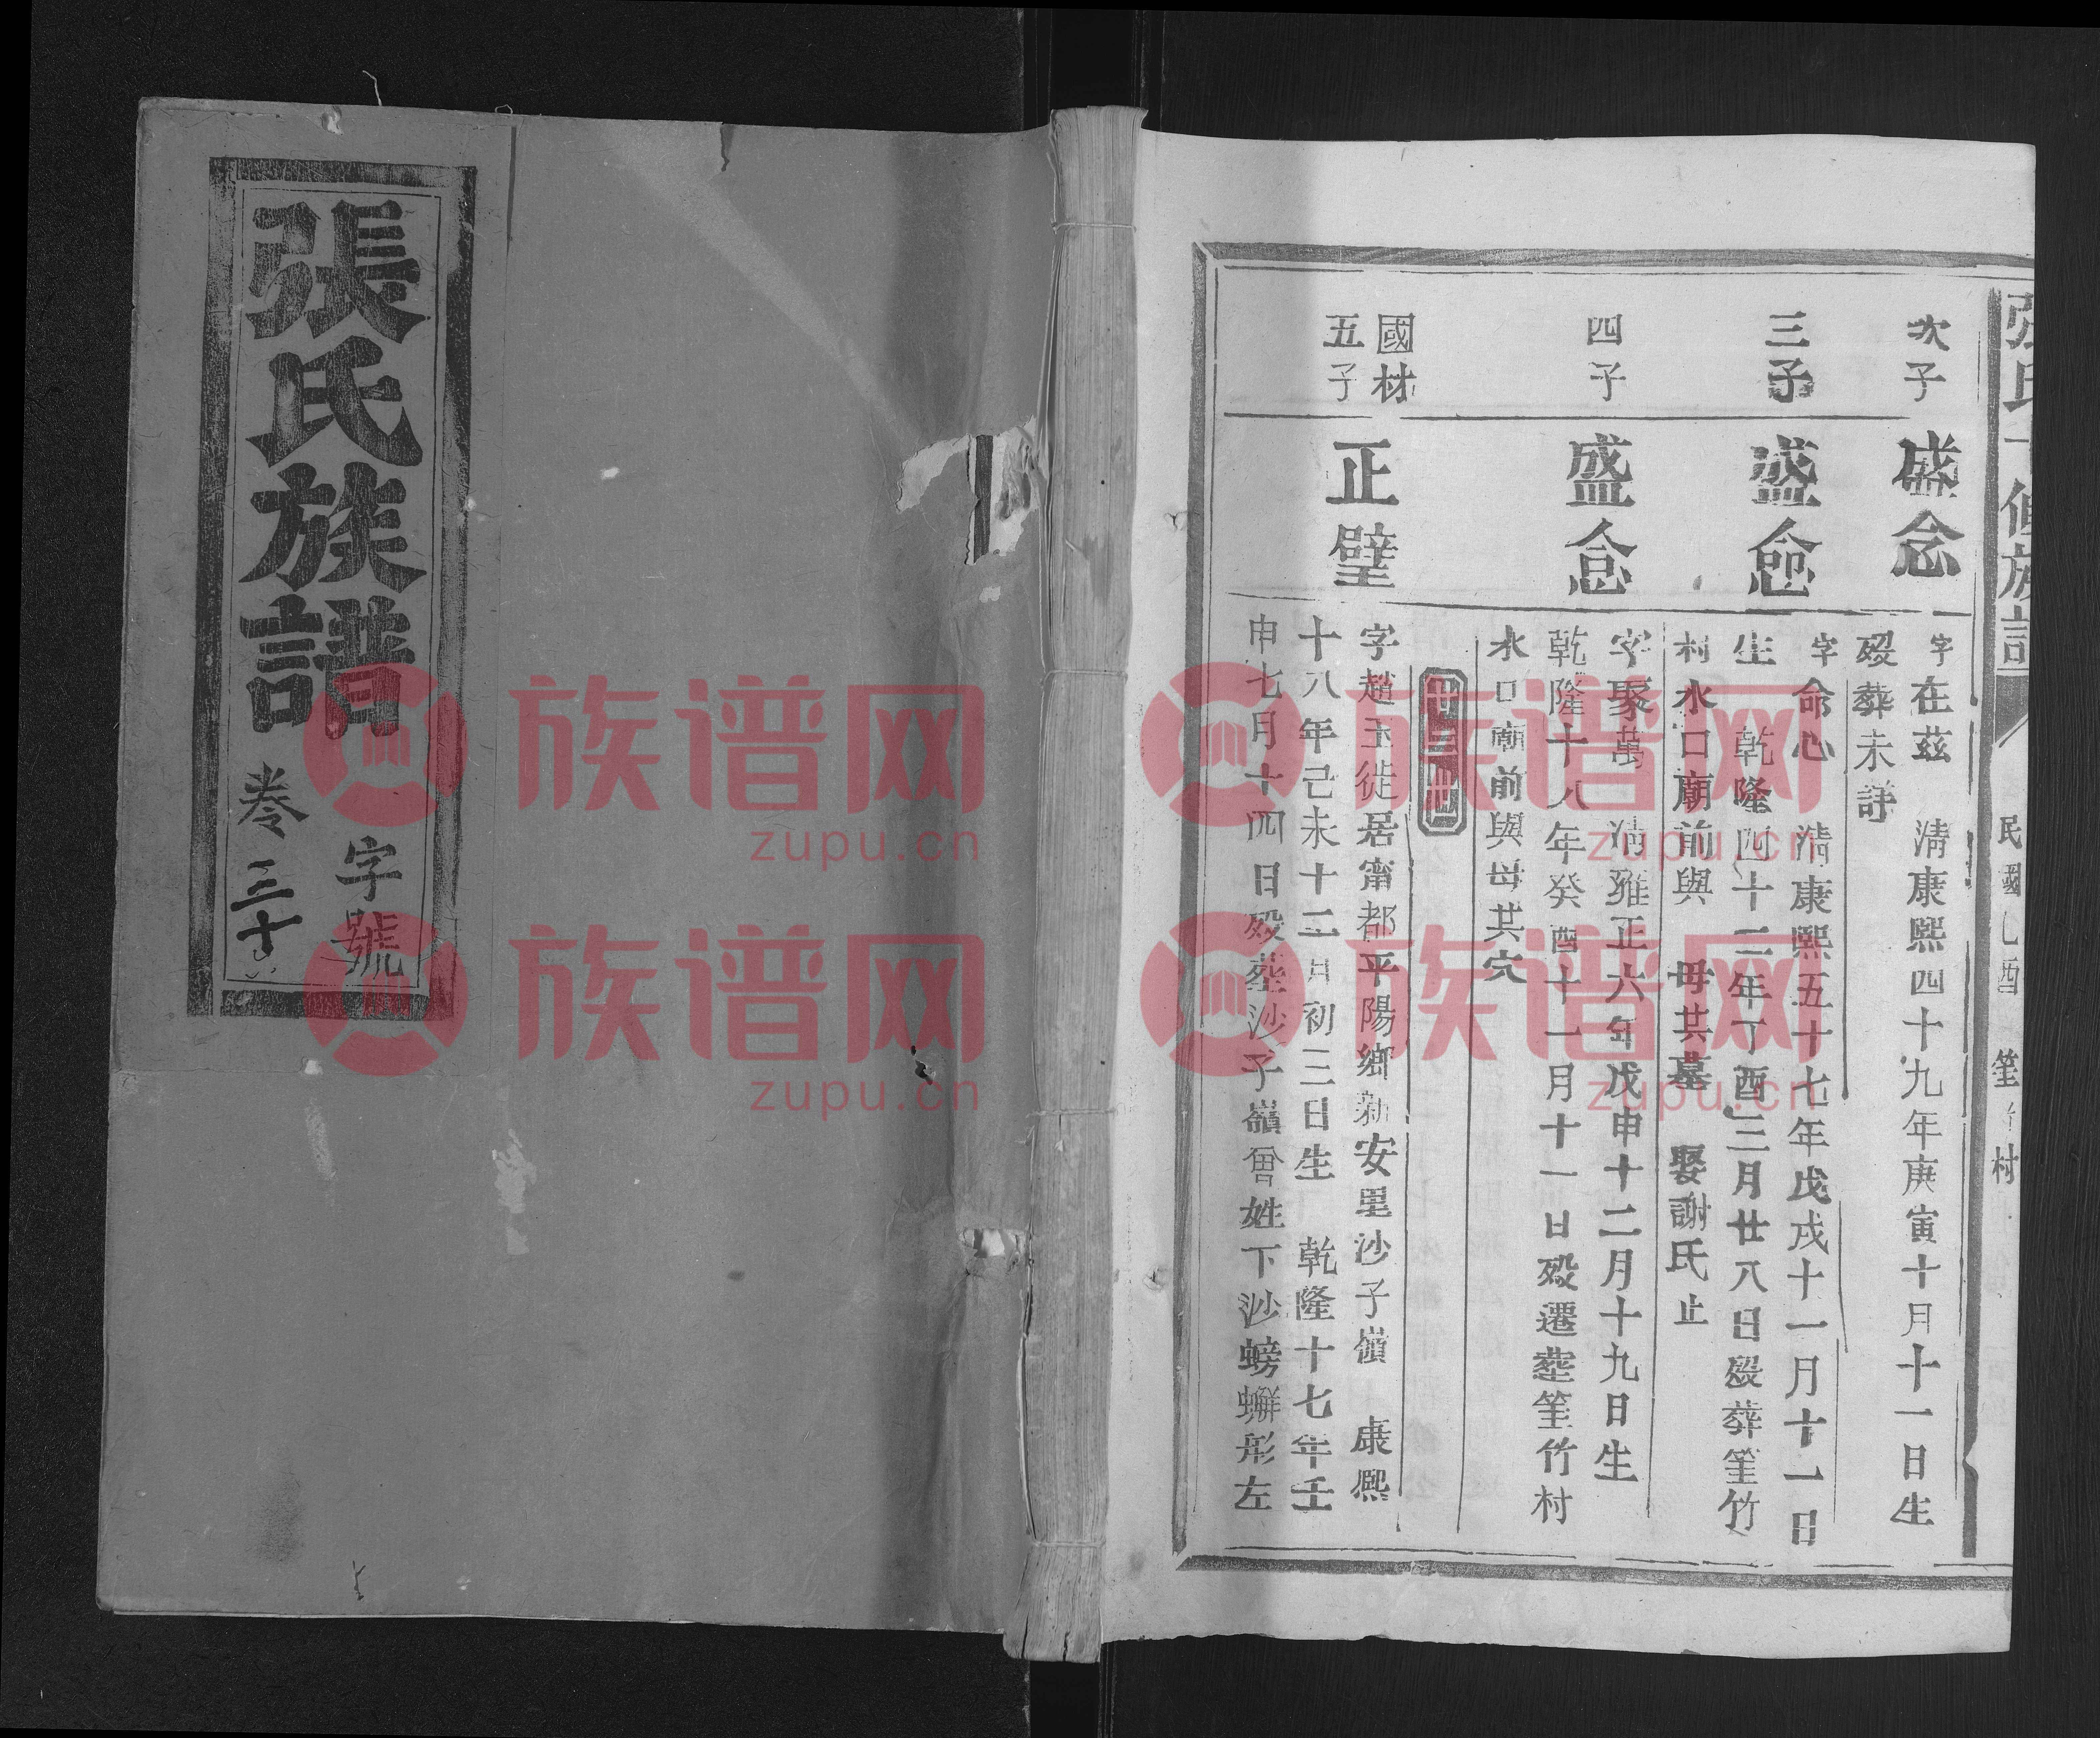 民國乙酉
村
次子
盛念
字在茲 清康熙四十九年庚寅十月十一日生
殁葬未詳
三子
盛愈
字命心 清康熙五十七年戊戌十一月十一日
生 乾隆四十二年丁酉三月廿八日殁葬篁竹
村水口廟前與 母共墓 娶謝氏止
四子
盛意
字聚萬 清雍正六年戊申十二月十九日生
乾隆十八年癸酉十一月十一日殁遷葬篁竹村
水口廟前與母共穴
廿三世
國材
五子
正壁
字趙玉徙居甯都平陽鄉新安里沙子嶺 康熙
十八年己未十二月初三日生 乾隆十七年壬
申七月十四日殁葬沙子嶺曾姓下沙螃蠏形左
張氏族譜
字號
卷三十
族谱网
zupu.cn
族谱网
zupu.cn
族谱网
zupu.cn
族谱网
zupu.cn